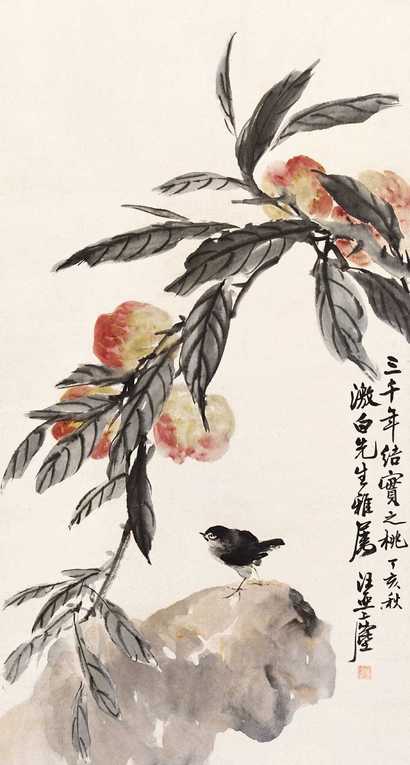 三千年结實之桃 丁亥秋
激白先生雅属 汪亞塵